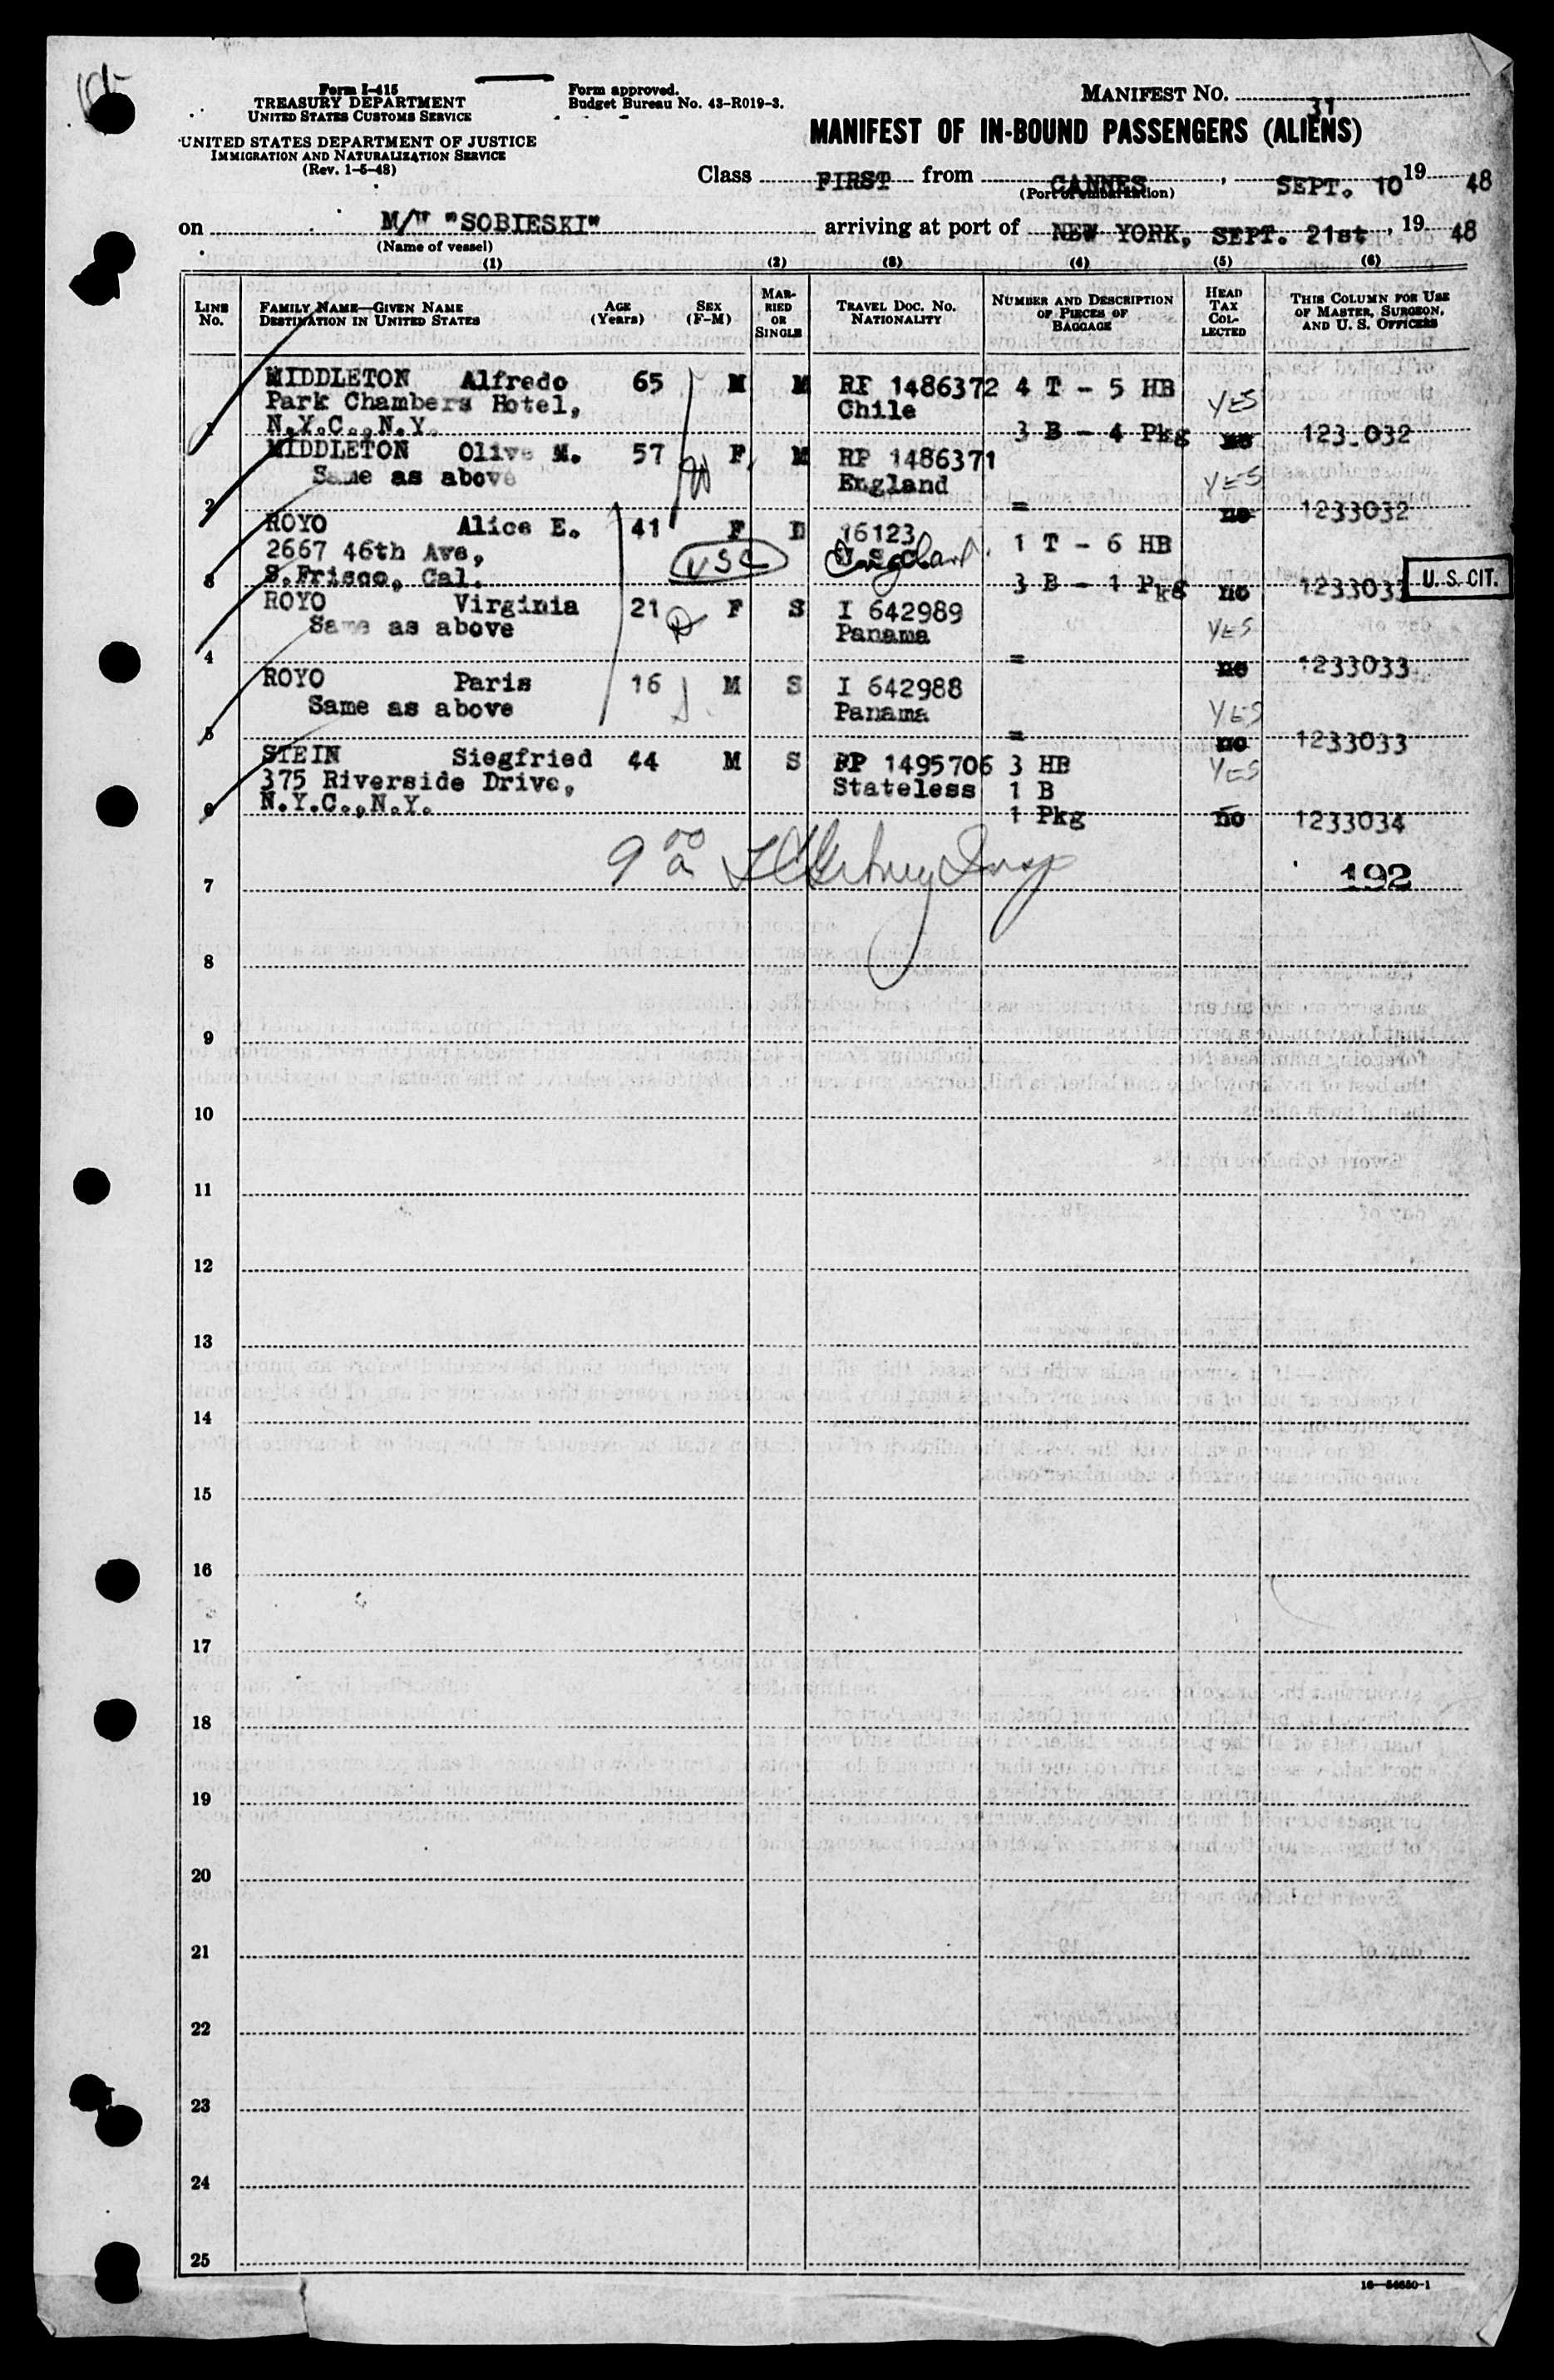 Form I-415
TREASURY DEPARTMENT
UNITED STATES CUSTOMS SERVICE
UNITED STATES DEPARTMENT OF JUSTICE
IMMIGRATION AND NATURALIZATION SERVICE
(Rev. 1-5-48)
Form approved.
Budget Bureau No. 43-R019-3.
MANIFEST NO. 31
MANIFEST OF IN-BOUND PASSENGERS (ALIENS)
Class FIRST from CANNES, SEPT. 10 19 48
(Port of embarkation)
on M/V "SOBIESKI" arriving at port of NEW YORK, SEPT. 21st, 19 48
(Name of vessel)
(1) (2) (3) (4) (5) (6)
LINE No. FAMILY NAME—GIVEN NAME DESTINATION IN UNITED STATES AGE (Years) SEX (F-M) MARRIED OR SINGLE TRAVEL DOC. NO. NATIONALITY NUMBER AND DESCRIPTION OF PIECES OF BAGGAGE HEAD TAX COLLECTED THIS COLUMN FOR USE OF MASTER, SURGEON, AND U. S. OFFICERS
MIDDLETON Alfredo 65 M M RP 1486372 4 T - 5 HB
Park Chambers Hotel, Chile YES
1 N.Y.C.,N.Y. 3 B - 4 Pkg no 123 032
MIDDLETON Olive M. 57 F M RP 1486371
Same as above England YES
2 = no 1233032
ROYO Alice E. 41 F D 16123 1 T - 6 HB
2667 46th Ave, USC England
3 S.Frisco, Cal. 3 B - 1 Pkg no 1233033 U. S. CIT.
ROYO Virginia 21 F S I 642989
Same as above Panama YES
4 = no 1233033
ROYO Paris 16 M S I 642988
Same as above Panama YES
5 = no 1233033
STEIN Siegfried 44 M S RP 1495706 3 HB YES
375 Riverside Drive, Stateless 1 B
6 N.Y.C.,N.Y. 1 Pkg no 1233034
7 192
8
9
10
11
12
13
14
15
16
17
18
19
20
21
22
23
24
25
16—54650-1